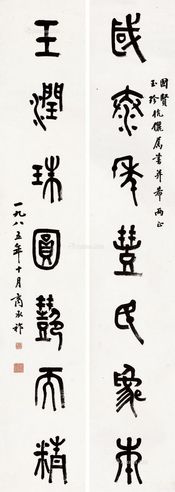 國泰年豐民象樂
國賢
玉珍伉儷屬書并希兩正
玉潤珠圓藝而精
一九八五年十月商承祚